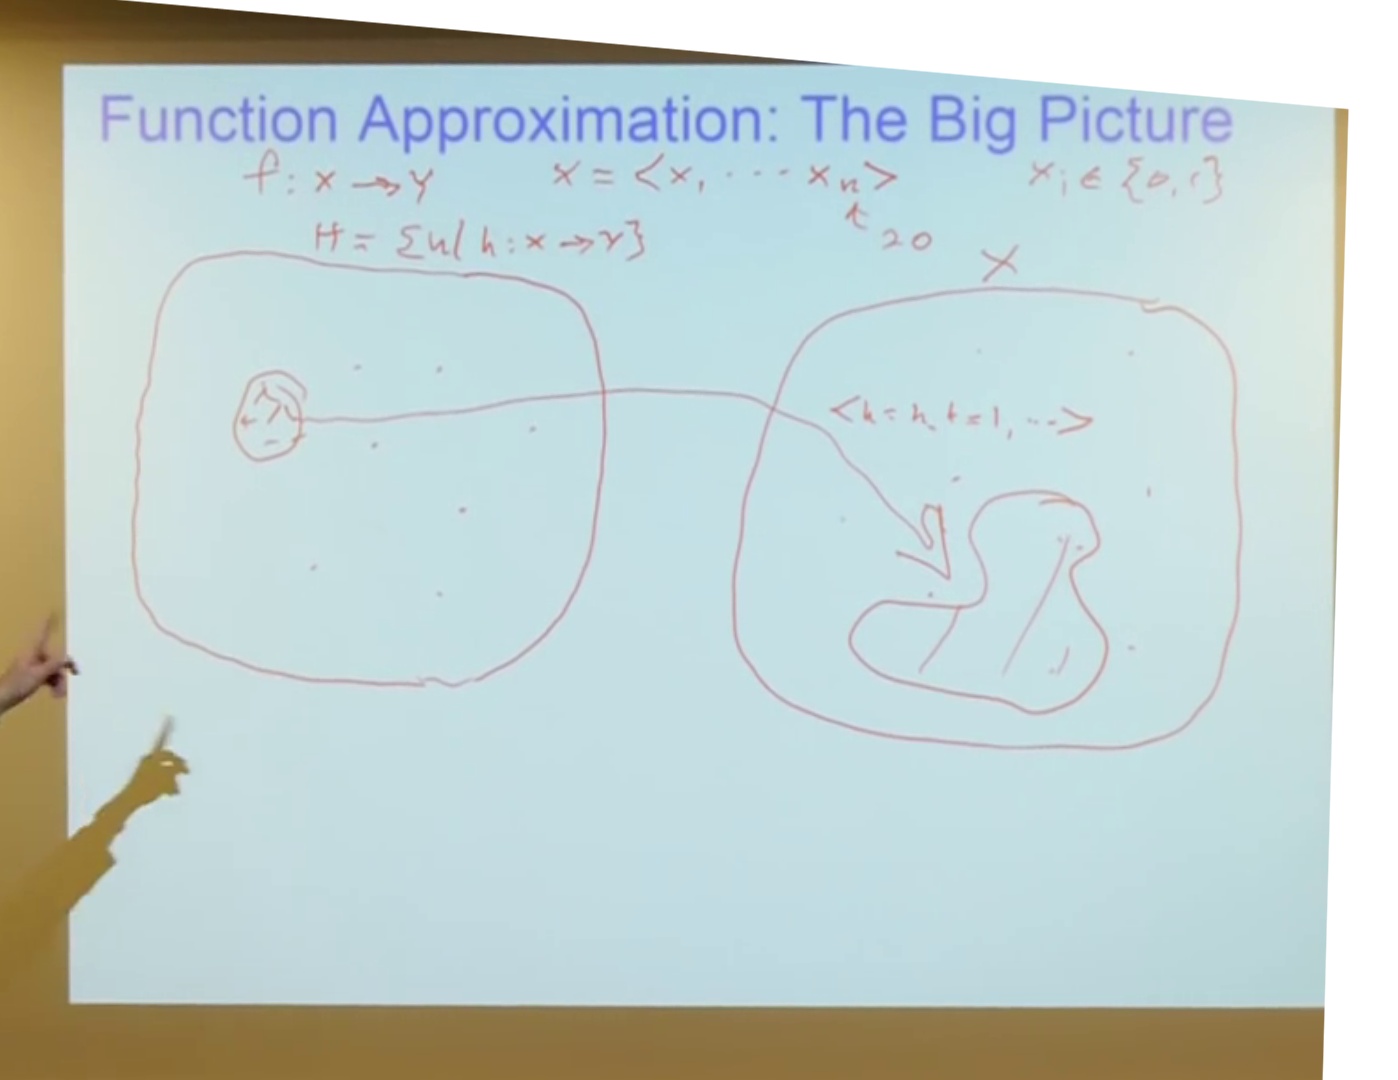 Function Approximation: The Big Picture
f: x → Y x = <x, ··· xn> xi ∈ {0,1}
H = {h| h: x → Y}
20
X